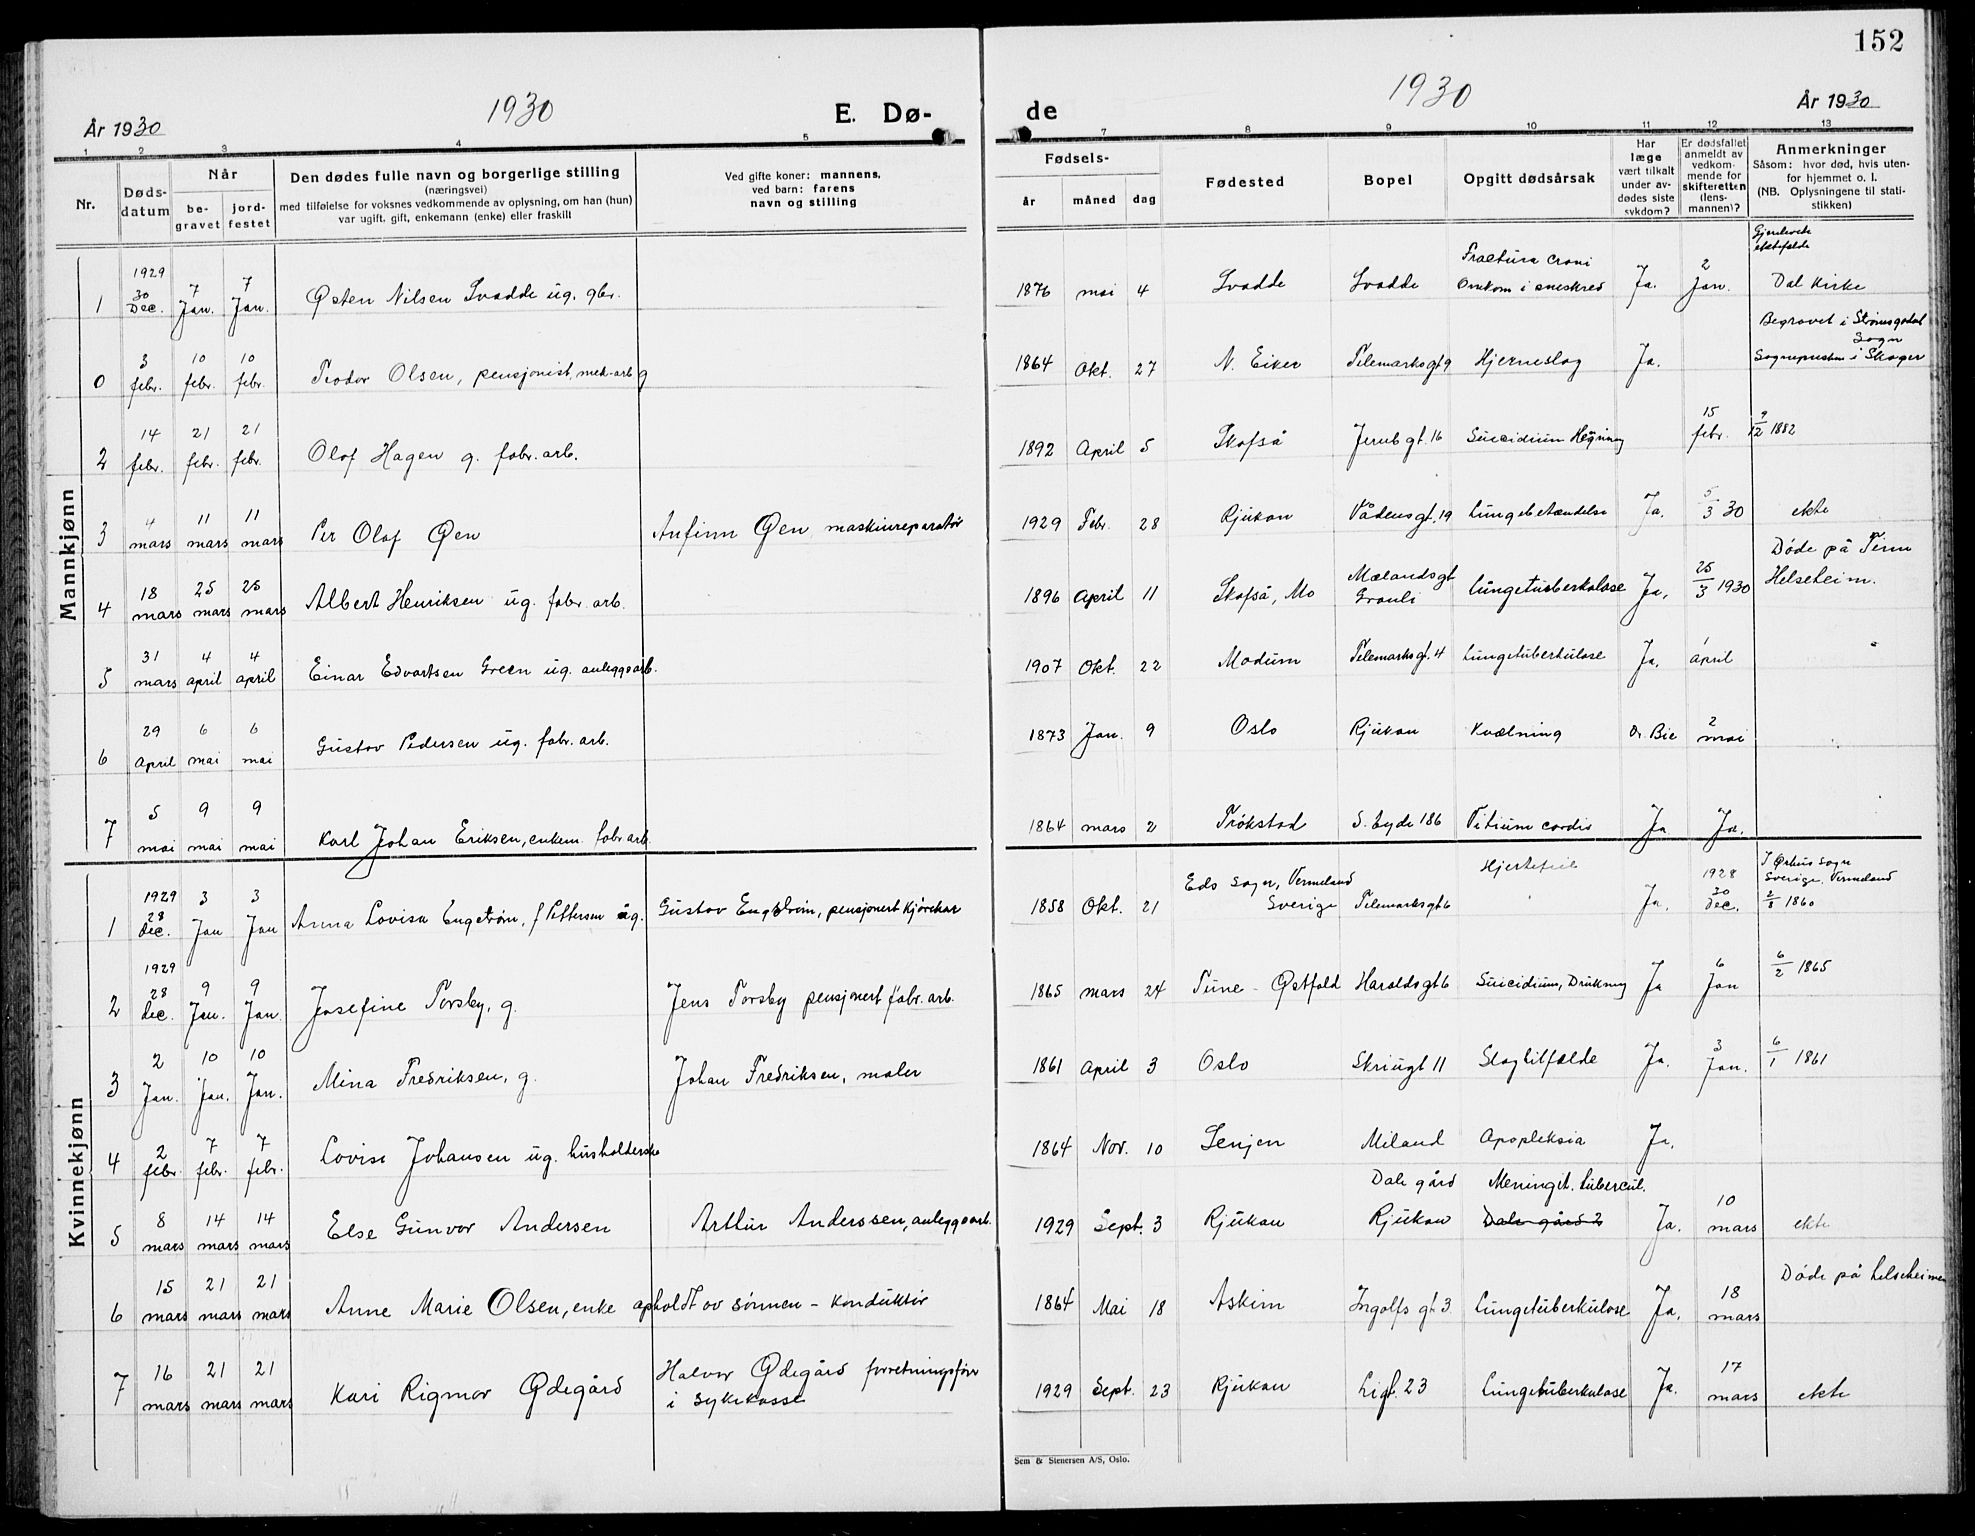 152
År 1930
1930
E. Dø-
de
1930
År 1930
1 2 3 4 5 7 8 9 10 11 12 13
Nr.
Døds-
datum
Når
be-
gravet
jord-
festet
Den dødes fulle navn og borgerlige stilling
(næringsvei)
med tilføielse for voksnes vedkommende av oplysning, om han (hun)
var ugift, gift, enkemann (enke) eller fraskilt
Ved gifte koner: mannens,
ved barn: farens
navn og stilling
Fødsels-
år
måned
dag
Fødested
Bopel
Opgitt dødsårsak
Har
læge
vært tilkalt
under av-
dødes siste
sykdom?
Er dødsfallet
anmeldt av
vedkom-
mende for
skifteretten
(lens-
mannen)?
Anmerkninger
Såsom: hvor død, hvis uten-
for hjemmet o. l.
(NB. Oplysningene til stati-
stikken)
Mannkjønn
1 1929 30 Dec. 7 Jan. 7 Jan. Østen Nilsen Svadde ug. gbr. 1876 mai 4 Svadde Svadde Fractura crani
Omkom i sneskred Ja. 2 Jan. Dal Kirke
0 3 febr. 10 febr. 10 febr. Teodor Olsen, pensjonist, mek. arb g 1864 Okt. 27 N. Eiker Telemarksgt 9 Hjerneslag Ja. Begravet i Strømsgodset
Sogn
Sognepresten i Skoger
2 14 febr. 21 febr. 21 febr. Olaf Hagen g. fabr. arb. 1892 April 5 Skafså Jernbgt. 16 Suicidium Hegning 15 febr. 9/12 1882
3 4 mars 11 mars 11 mars Per Olaf Øen Anfinn Øen maskinreparatør 1929 Febr. 28 Rjukan Vådensgt. 19 Lungebetændelse Ja. 5/3 30 ekte
4 18 mars 25 mars 25 mars Albert Henriksen ug. fabr. arb. 1896 April 11 Skafså, Mo Mælandsgt
Grauli Lungetuberkulose Ja. 25/3 1930 Døde på Tinn
Helseheim.
5 31 mars 4 april 4 april Einar Edvartsen Green ug. anleggsarb. 1907 Okt. 22 Modum Telemarksgt. 4 Lungetuberkulose Ja. 1 april
6 29 April 6 mai 6 mai Gustav Pedersen ug. fabr. arb. 1873 Jan. 9 Oslo Rjukan Kvælning Dr. Bie 2 mai
7 5 mai 9 mai 9 mai Karl Johan Eriksen, enkem. fabr. arb. 1864 mars 2 Trøkstad S. Eyde 186 Vitium cordis Ja Ja.
Kvinnekjønn
1 1929 28 dec. 3 Jan 3 Jan Anna Lovisa Engstrøm, f Pettersen ug. Gustav Engstrøm, pensjonert kjørekar 1858 Okt. 21 Eds sogn, Vermeland
Sverige Telemarksgt 6 Hjertefeil Ja. 1928 30 Dec. I Ørhus sogn
Sverige. Vermeland
2/8 1860
2 1929 28 dec. 9 Jan. 9 Jan. Josefine Torsby, g. Jens Torsby pensjonert fabr. arb. 1865 mars 24 Tune - Østfold Haraldsgt 6 Suicidium, Drukning Ja 6 Jan 6/2 1865
3 2 Jan. 10 Jan. 10 Jan. Mina Fredriksen, g. Johan Fredriksen, maler 1861 April 3 Oslo Skriugt 11 Slagtilfælde Ja. 3 Jan. 6/1 1861
4 2 febr. 7 febr. 7 febr. Lovise Johansen ug. husholderske 1864 Nov. 10 Senjen Miland Apopleksia Ja.
5 8 mars 14 mars 14 mars Else Gunvor Andersen Arthur Anderssen, anleggsarb. 1929 Sept. 3 Rjukan Dale gård
Rjukan Meningit. tubercul.
Dale gård 2 Ja. 10 mars ekte
6 15 mars 21 mars 21 mars Anne Marie Olsen, enke opholdt av sønnen - konduktør 1864 Mai 18 Askim Ingolfs gt. 3 Lungetuberkulose Ja. 18 mars Døde på helseheimen
7 16 mars 21 mars 21 mars Kari Rigmor Ødegård Halvor Ødegård forretningsfører
i sykekasse 1929 Sept. 23 Rjukan Ligt. 23 Lungetuberkulose Ja. 17 mars ekte
Sem & Stenersen A/S, Oslo.